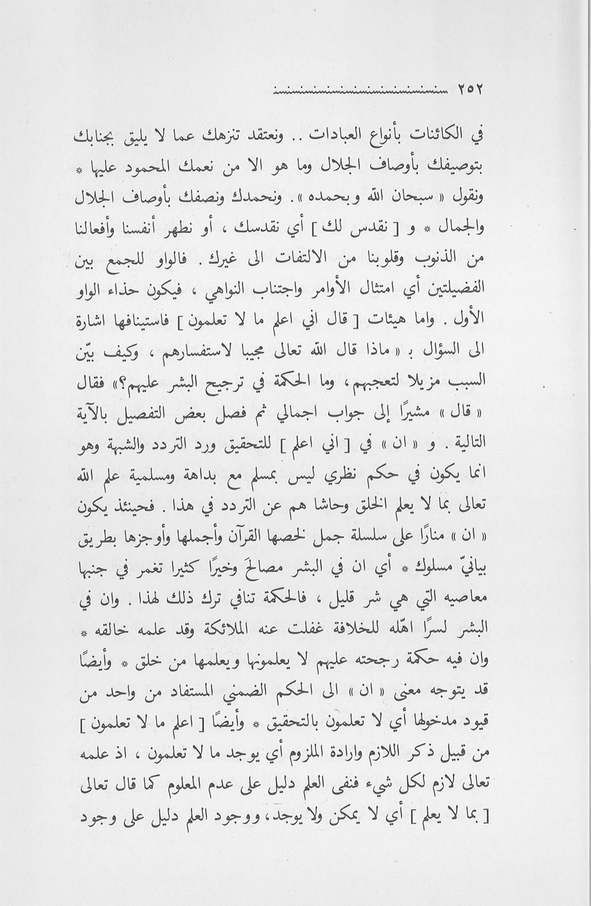 ٢٥٢
في الكائنات بأنواع العبادات .. ونعتقد تنزهك عما لا يليق بجنابك
بتوصيفك بأوصاف الجلال وما هو الا من نعمك المحمود عليها *
ونقول « سبحان الله وبحمده ». ونحمدك ونصفك بأوصاف الجلال
والجمال * و [ نقدس لك ] أي نقدسك ، أو نطهر أنفسنا وأفعالنا
من الذنوب وقلوبنا من الالتفات الى غيرك. فالواو للجمع بين
الفضيلتين أي امتثال الأوامر واجتناب النواهي ، فيكون حذاء الواو
الأول. واما هيئات [ قال اني اعلم ما لا تعلمون ] فاستينافها اشارة
الى السؤال بـ « ماذا قال الله تعالى مجيبا لاستفسارهم ، وكيف بيّن
السبب مزيلا لتعجبهم، وما الحكمة في ترجيح البشر عليهم؟» فقال
« قال » مشيرًا إلى جواب اجمالي ثم فصل بعض التفصيل بالآية
التالية . و « ان » في [ اني اعلم ] للتحقيق ورد التردد والشبهة وهو
انما يكون في حكم نظري ليس بمسلم مع بداهة ومسلمية علم الله
تعالى بما لا يعلم الخلق وحاشا هم عن التردد في هذا . فحينئذ يكون
« ان » منارًا على سلسلة جمل لخصها القرآن وأجملها وأوجزها بطريق
بيانيّ مسلوك * أي ان في البشر مصالحَ وخيرًا كثيرا تغمر في جنبها
معاصيه التي هي شر قليل ، فالحكمة تنافي ترك ذلك لهذا . وان في
البشر لسرًا اهّله للخلافة غفلت عنه الملائكة وقد علمه خالقه *
وان فيه حكمة رجحته عليهم لا يعلمونها ويعلمها من خلق * وأيضًا
قد يتوجه معنى « ان » الى الحكم الضمني المستفاد من واحد من
قيود مدخولها أي لا تعلمون بالتحقيق * وأيضًا [ اعلم ما لا تعلمون ]
من قبيل ذكر اللازم وارادة الملزوم أي يوجد ما لا تعلمون ، اذ علمه
تعالى لازم لكل شيء فنفى العلم دليل على عدم المعلوم كما قال تعالى
[ بما لا يعلم ] أي لا يمكن ولا يوجد، ووجود العلم دليل على وجود